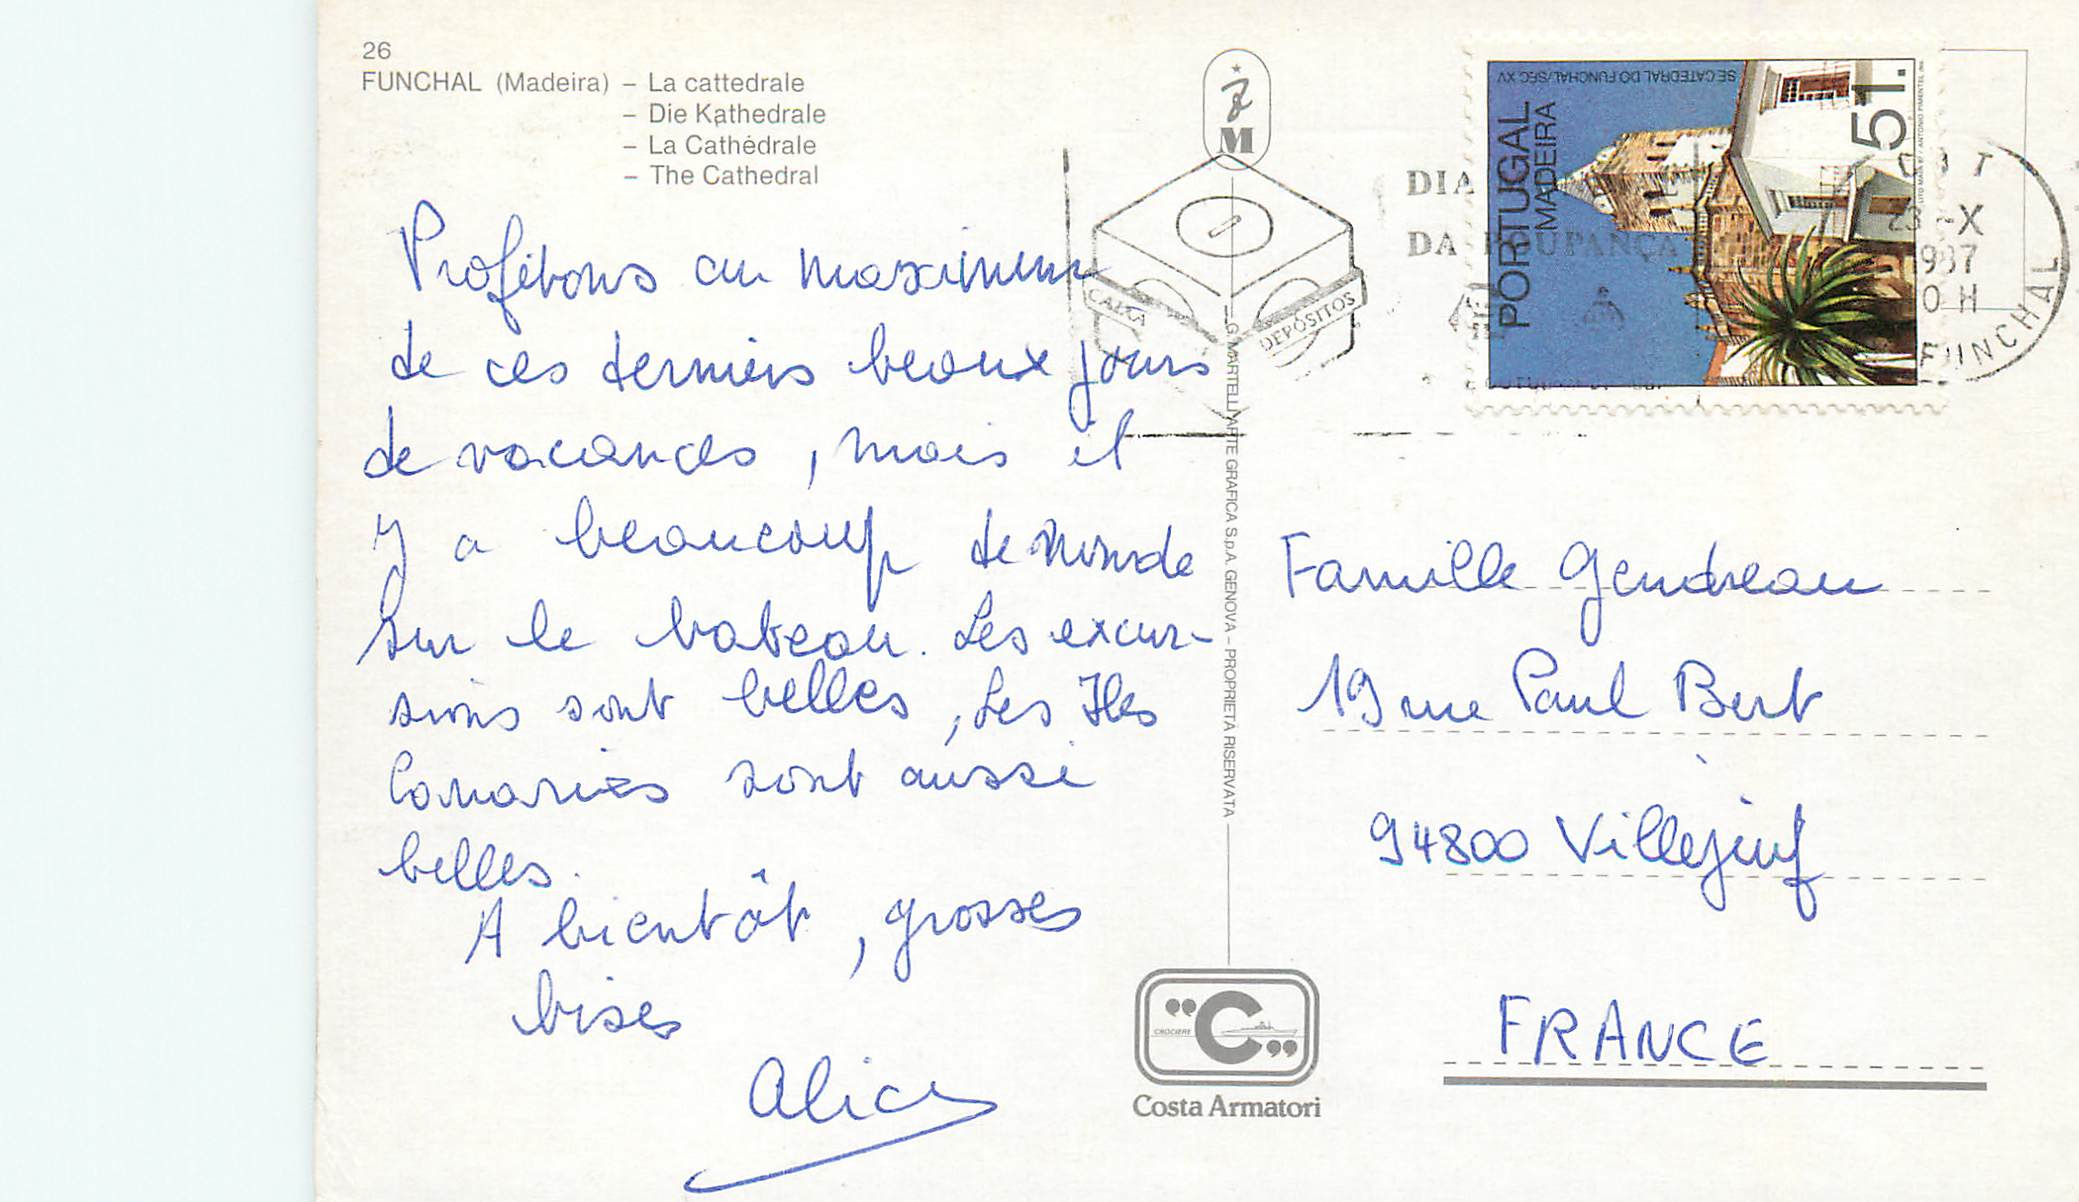 26
FUNCHAL (Madeira) – La cattedrale
– Die Kathedrale
– La Cathédrale
– The Cathedral
Profitons au maximum
de ces derniers beaux jours
de vacances, mais il
y a beaucoup de monde
sur le bateau. Les excur-
sions sont belles, Les Iles
Canaries sont aussi
belles.
A bientôt, grosses
bises
Alice
M
G. MARTELLI ARTE GRAFICA S.p.A. GENOVA – PROPRIETÀ RISERVATA
CROCIERE
C
Costa Armatori
CAIXA
DEPÓSITOS
DIA
DA POUPANÇA
PORTUGAL
MADEIRA
SÉ CATEDRAL DO FUNCHAL/SÉC XV
51.
23 -X
1987
0 H
FUNCHAL
Famille Gendreau
19 rue Paul Bert
94800 Villejuif
FRANCE